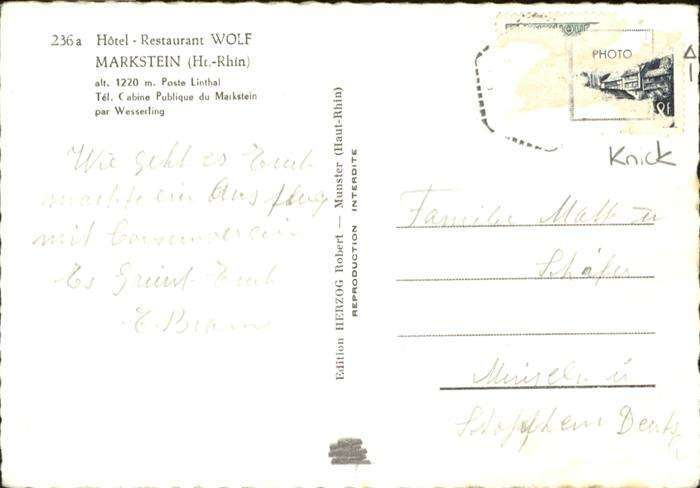 236a Hôtel - Restaurant WOLF
MARKSTEIN (Ht.-Rhin)
alt. 1220 m. Poste Linthal
Tél. Cabine Publique du Markstein
par Wesserling
Wie geht es Euch
machte ein Ausflug
mit Consumverein
Es Grüst Euch
E. Braun
Edition HERZOG Robert — Munster (Haut-Rhin)
REPRODUCTION INTERDITE
PHOTO
8f
Knick
Familie
Schäfer